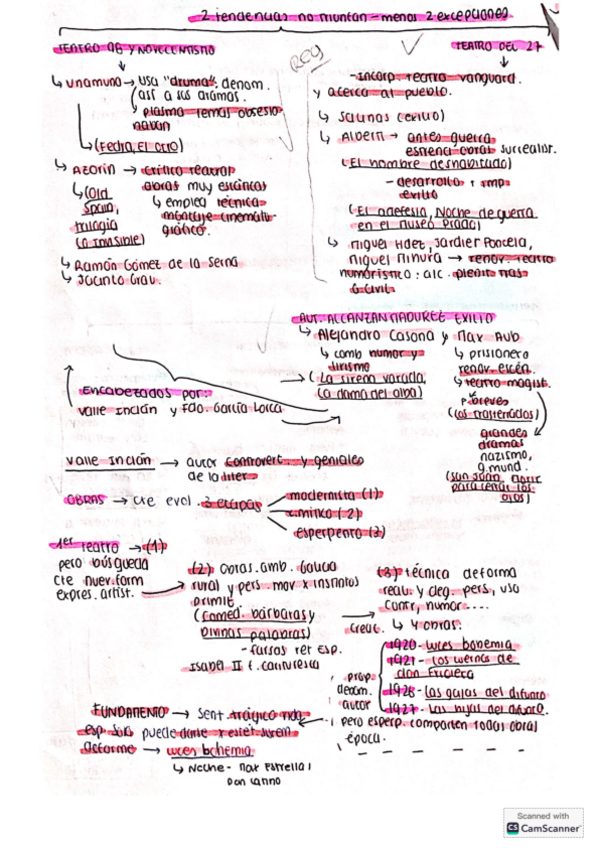 2 tendencias no triunfan - menos 2 excepciones
TEATRO 98 y NOVECENTISMO
↳ Unamuno → usa "druma": denom.
así a sus dramas.
↳ plasma temas obsesio
naban
↳ (Fedra, el otro)
↳ AZORÍN → crítico teatral
obras muy escénicas
↳ (Old
Spain,
trilogía
Lo invisible)
↳ emplea técnica
montaje cinemato-
gráfico.
↳ Ramón Gómez de la Serna
↳ Jacinto Grau.
TEATRO DEL 27
- incorp. teatro vanguard.
y acerca al pueblo.
↳ Salinas (exilio)
↳ Alberti → antes guerra
estrena obras surrealis.
(El hombre deshabitado)
- desarrollo + imp
exilio
(El adefesio, Noche de guerra
en el museo Prado)
↳ Miguel Hdez, Jardiel Poncela,
Miguel Mihura → renov. teatro
humorístico: alc. plenit. tras
G.Civil
AUT. ALCANZAN MADUREZ EXILIO
↳ Alejandro Casona y Max Aub
↳ comb humor y
lirismo
→ (La sirena varada,
La dama del alba)
↳ prisionero
renov. escén.
↳ teatro magist.
breves
(Los trasterrados)
grandes
dramas
nazismo,
g.mund.
(San Juan, morir
para cerrar los
ojos)
Encabezados por:
Valle Inclán y Fdo. García Lorca
Valle Inclán → autor controvert. y geniales
de la liter
OBRAS → cte evol. 3 etapas
modernista (1)
mítico (2)
esperpento (3)
1er teatro → (1)
pero búsqueda
cte nuev. form
expres. artíst.
(2) Obras. amb. Galicia
rural y pers. mov x instintos
primit
(Comed. bárbaras y
Divinas palabras)
- farsas rer Esp.
Isabel II t. caricaturesca
(3) técnica deforma
realid. y deg. pers, uso
contr, humor....
creac. ↳ 4 obras.
1920 - Luces bohemia
1921 - Los cuernos de
don Friolera
1926 - Las galas del difunto
1927 - La hija del difunto.
prop.
denom.
autor
pero esperp. comparten todas obras
época.
FUNDAMENTO → sent. trágico vida
esp. solo puede darse x estét. sistem.
deforme → Luces bohemia
↳ Noche - Max Estrella y
Don Latino
Scanned with
CS CamScanner